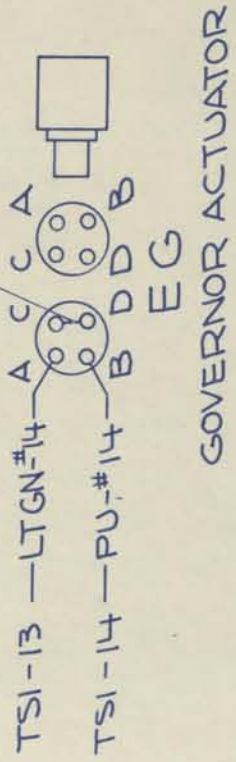 A C C A
TS1-13 —LTGN-#14
TS1-14 —PU-#14
B D D B
EG
GOVERNOR ACTUATOR